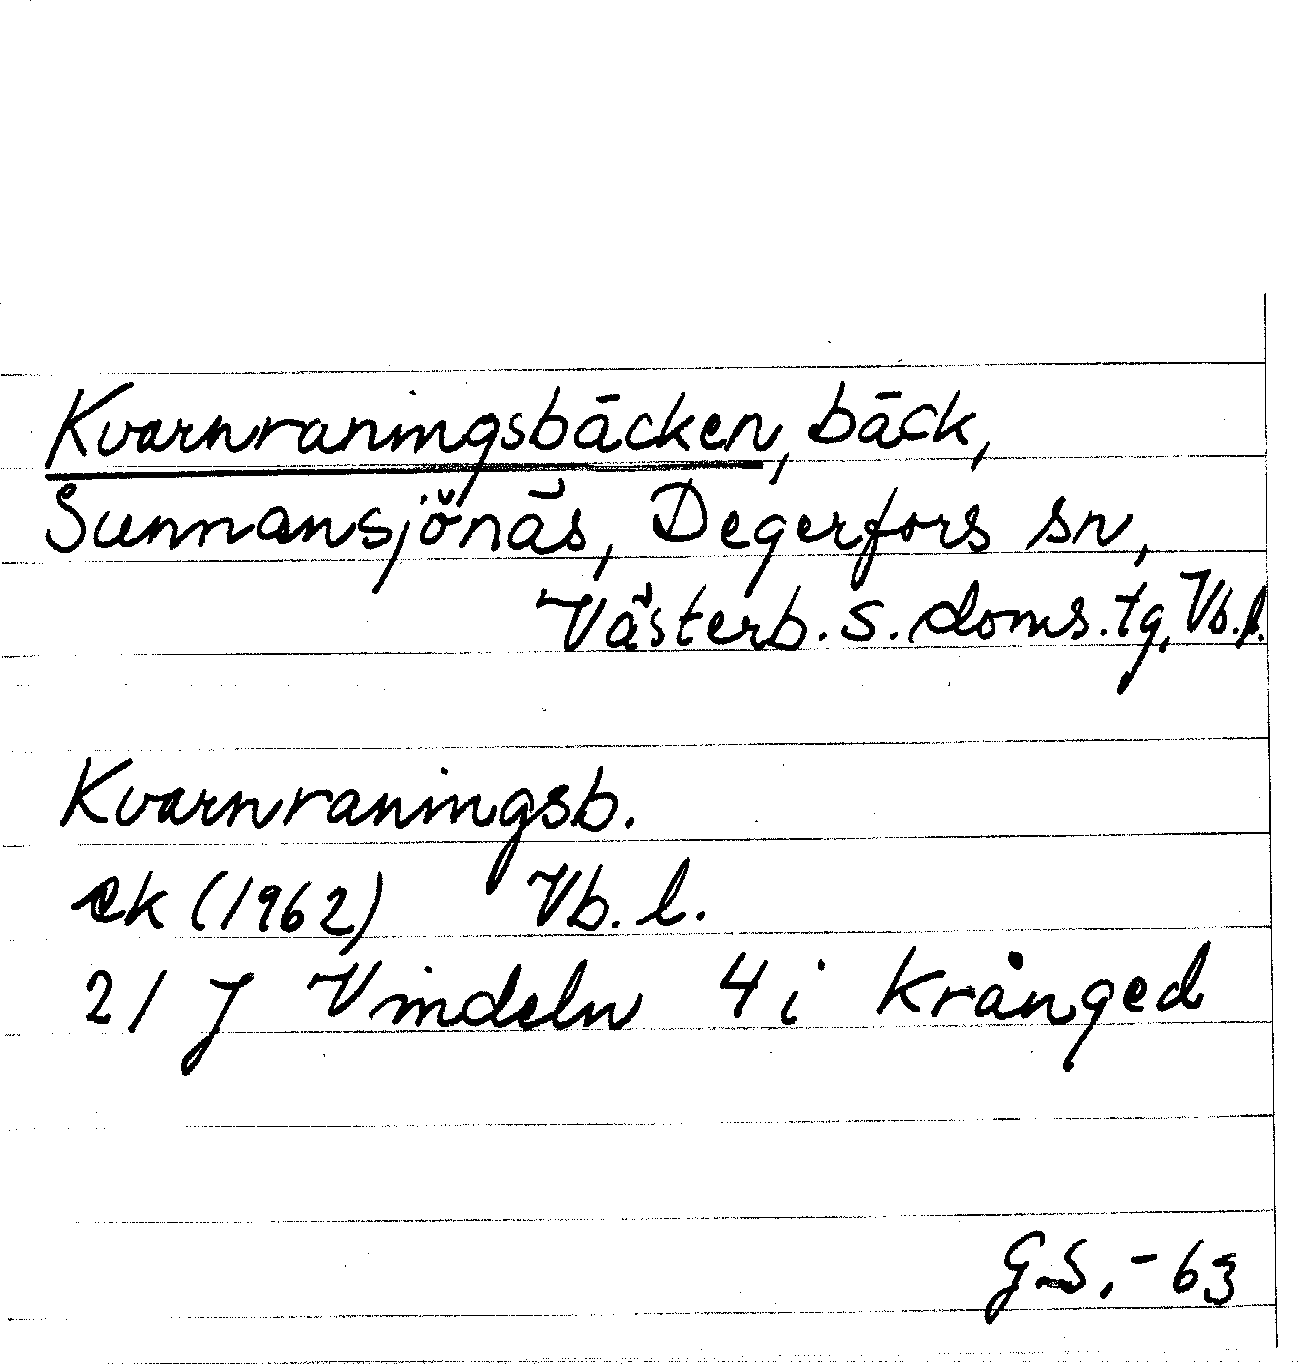 Kvarnraningsbäcken, bäck,
Sunnansjönäs, Degerfors sn,
Västerb. s. doms. tg, Vb. l.
Kvarnraningsb.
ek (1962) Vb. l.
21 J Vindeln 4 i Krånged
G.S. - 63